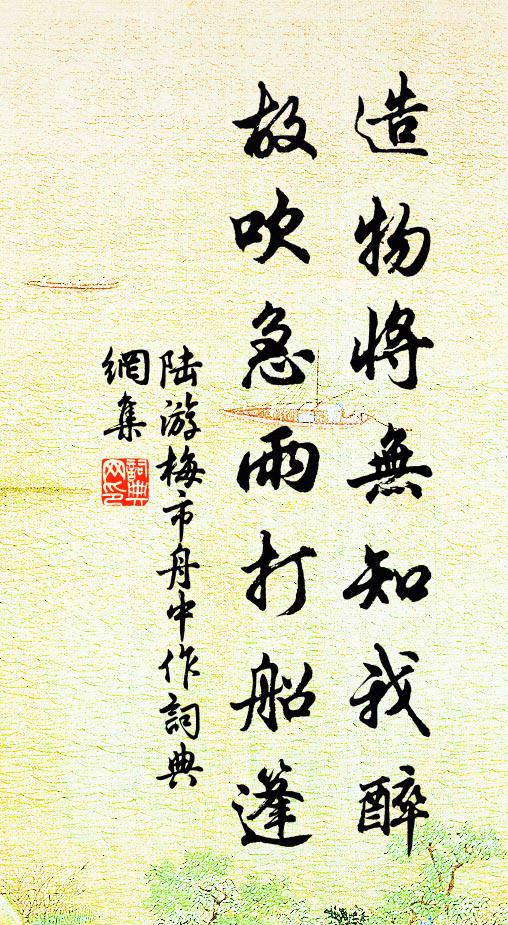 造物將無知我醉
故吹急雨打船篷
陸游梅市舟中作詞典
網集
詞典
网印